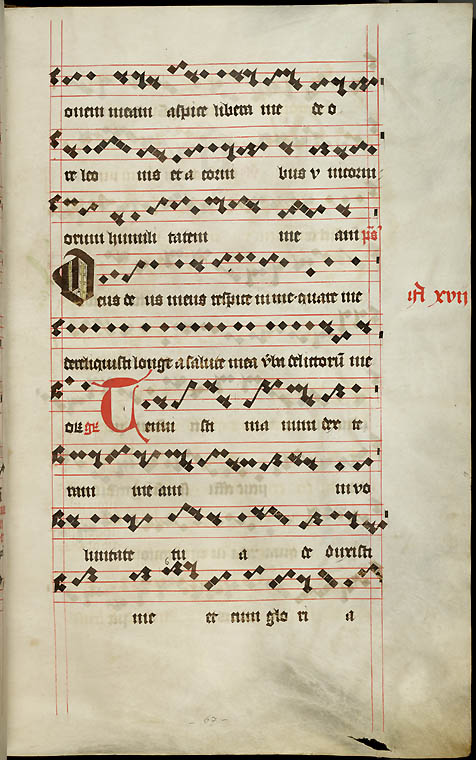 onem meam aspice libera me de o
re leo nis et a corni bus v nicorni
orum humili tatem me am ps̄
Deus de us meus respice in me quare me
dereliquisti longe a salute mea v̄ba delictorū me
or gr Tenui sti ma num dex te
ram me am in vo
luntate tu a de duxisti
me et cum glo ri a
xvii
- 67 -